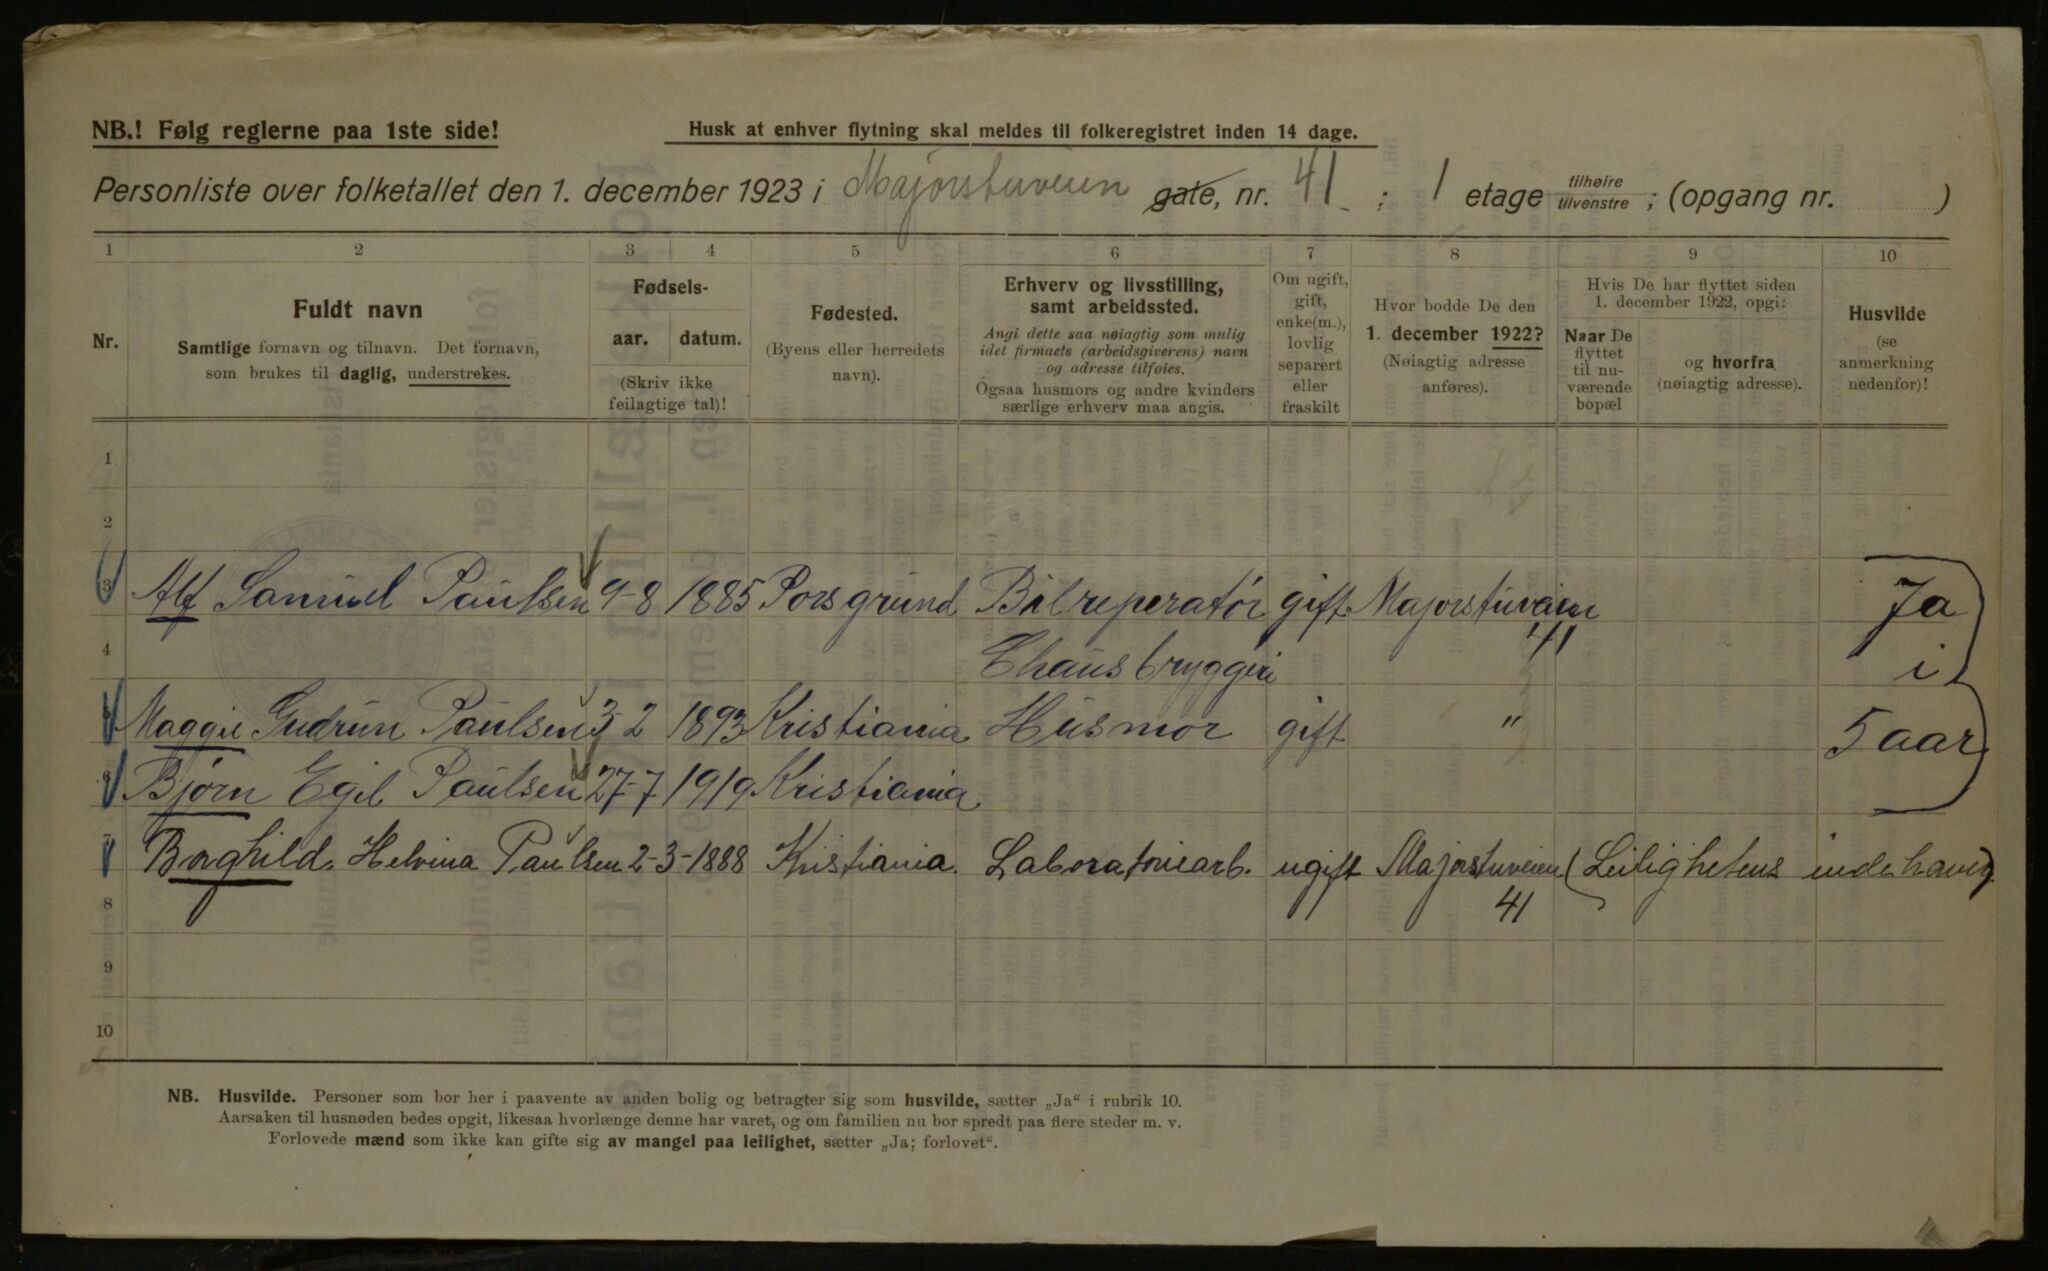 NB.! Følg reglerne paa 1ste side!
Husk at enhver flytning skal meldes til folkeregistret inden 14 dage.
Personliste over folketallet den 1. december 1923 i Majorstuveien gate, nr. 41. ; 1 etage tilhøire tilvenstre ; (opgang nr. )
1 2 3 4 5 6 7 8 9 10
Nr.
Fuldt navn
Samtlige fornavn og tilnavn. Det fornavn,
som brukes til daglig, understrekes.
Fødsels-
aar. datum.
(Skriv ikke
feilagtige tal)!
Fødested.
(Byens eller herredets
navn).
Erhverv og livsstilling,
samt arbeidssted.
Angi dette saa nøiagtig som mulig
idet firmaets (arbeidsgiverens) navn
og adresse tilføies.
Ogsaa husmors og andre kvinders
særlige erhverv maa angis.
Om ugift,
gift,
enke(m.),
lovlig
separert
eller
fraskilt
Hvor bodde De den
1. december 1922?
(Nøiagtig adresse
anføres).
Hvis De har flyttet siden
1. december 1922, opgi:
Naar De
flyttet
til nu-
værende
bopæl
og hvorfra
(nøiagtig adresse).
Husvilde
(se
anmerkning
nedenfor)!
1
2
3 Alf Samuel Paulsen 9-8 1885 Porsgrund Bilreperatør gift Majorstuveien Ja
41
4 Chaus bryggeri i
5 Maggie Gudrun Paulsen 3-2 1893 Kristiania Husmor gift " 5 aar
6 Bjørn Egil Paulsen 27-7 1919 Kristiania
7 Borghild Helvina Paulsen 2-3-1888 Kristiania. Laboratoriearb. ugift Majorstuveien (Leilighetens indehaver)
8 41
9
10
NB. Husvilde. Personer som bor her i paavente av anden bolig og betragter sig som husvilde, sætter „Ja“ i rubrik 10.
Aarsaken til husnøden bedes opgit, likesaa hvorlænge denne har varet, og om familien nu bor spredt paa flere steder m. v.
Forlovede mænd som ikke kan gifte sig av mangel paa leilighet, sætter „Ja; forlovet“.